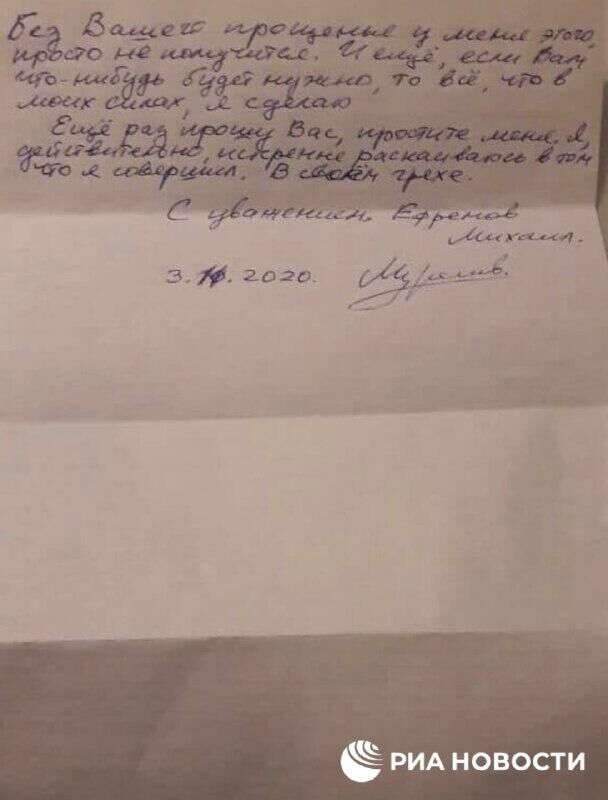 Без Вашего прощенья у меня этого,
просто не получится. И ещё, если Вам
что-нибудь будет нужно, то всё, что в
моих силах, я сделаю
Ещё раз прошу Вас, простите меня. Я,
действительно, искренне раскаиваюсь в том
что я совершил. В своём грехе.
С уважением, Ефремов
Михаил.
3. .2020.
РИА НОВОСТИ